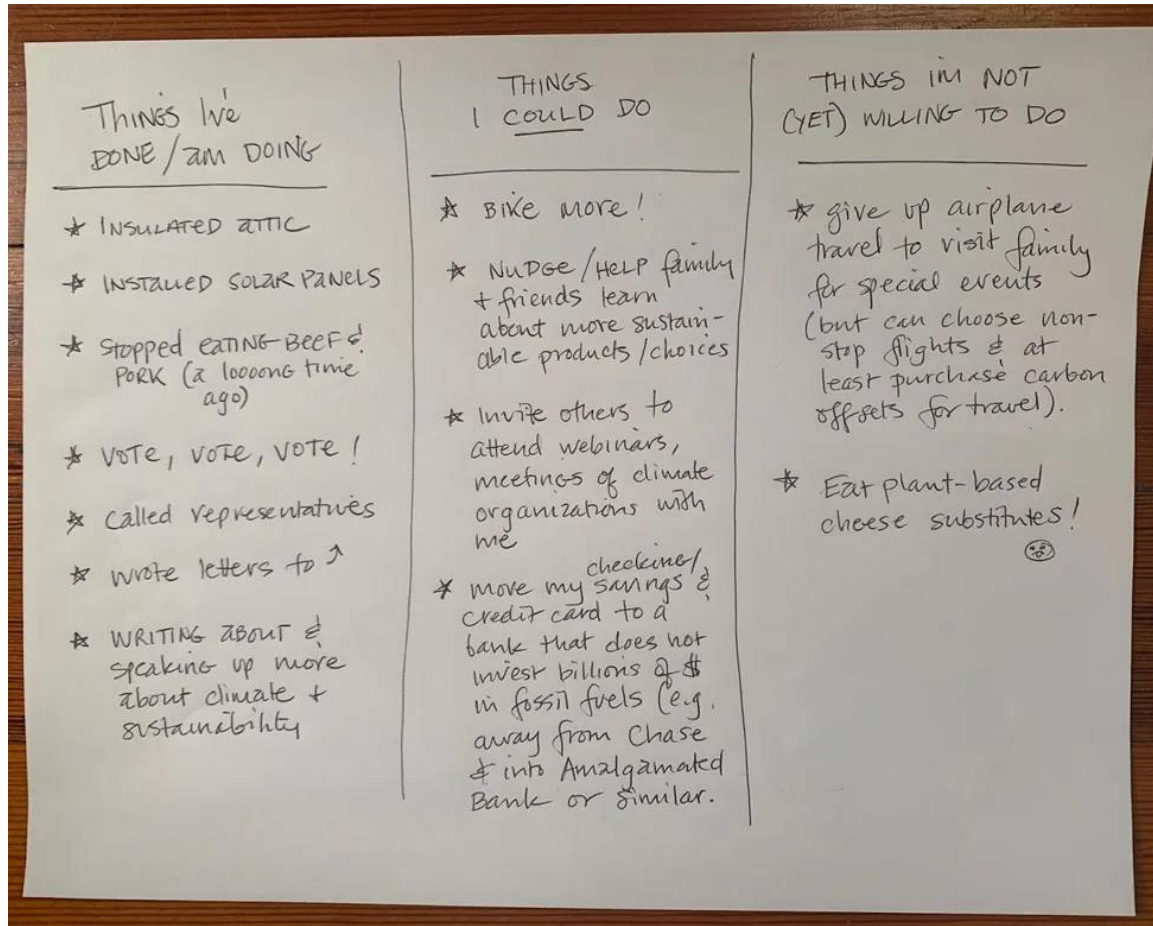 Things I've
DONE / am DOING
★ INSULATED ATTIC
★ INSTALLED SOLAR PANELS
★ Stopped EATING BEEF &
PORK (a loooong time
ago)
★ VOTE, VOTE, VOTE !
★ Called representatives
★ Wrote letters to ↗
★ WRITING ABOUT &
speaking up more
about climate +
sustainability
THINGS
I COULD DO
★ Bike more !
★ NUDGE / HELP family
+ friends learn
about more sustain-
able products / choices
★ Invite others to
attend webinars,
meetings of climate
organizations with
me
checking/
★ move my savings &
credit card to a
bank that does not
invest billions of $
in fossil fuels (e.g.
away from Chase
& into Amalgamated
Bank or similar.
THINGS I'M NOT
(YET) WILLING TO DO
★ give up airplane
travel to visit family
for special events
(but can choose non-
stop flights & at
least purchase carbon
offsets for travel).
★ Eat plant-based
cheese substitutes !